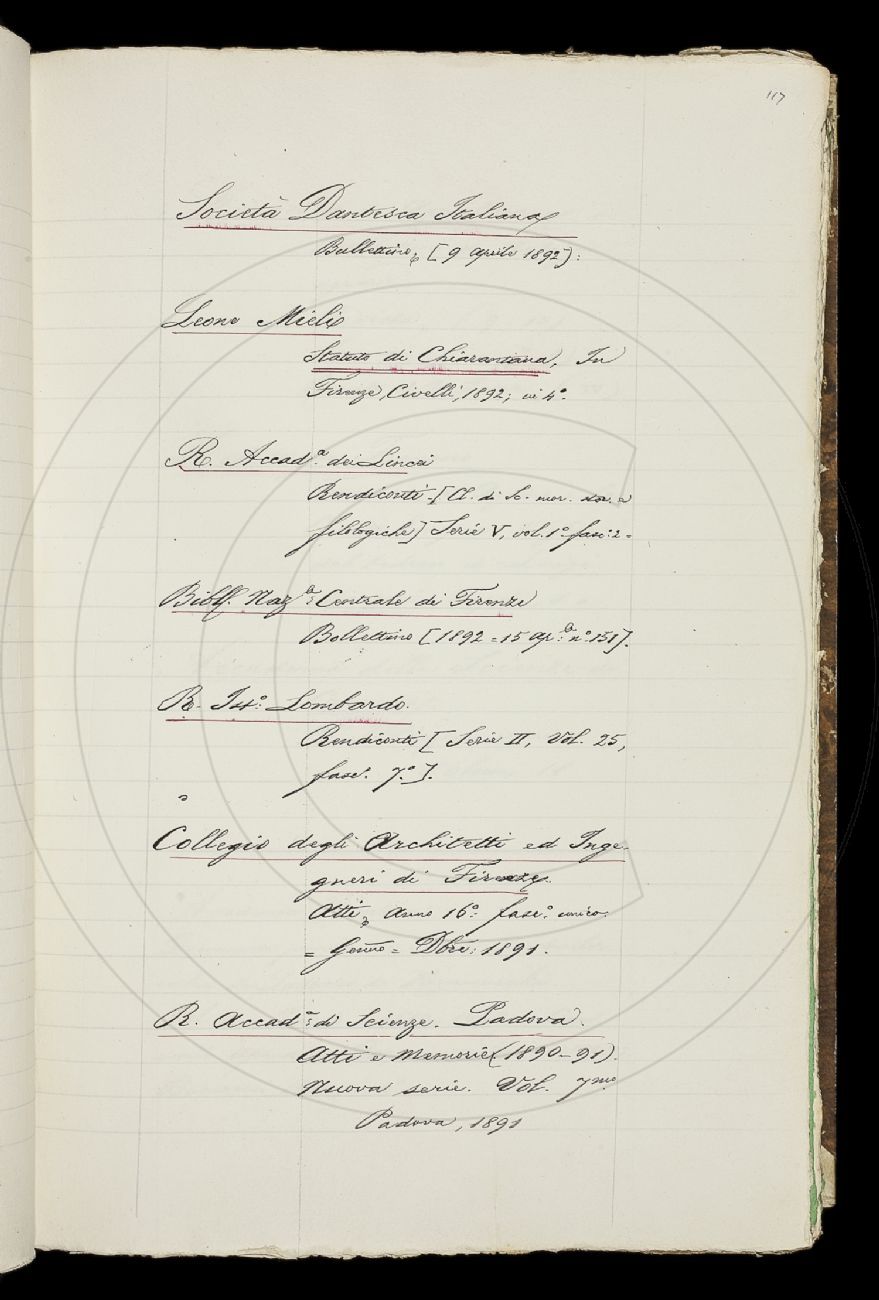 117
Società Dantesca Italiana
Bullettino, [9 aprile 1892]:
Leone Mieli
Statuto di Chiarantana, In
Firenze, Civelli, 1892; in 4.º
R. Accad.ª dei Lincei
Rendiconti - [Cl. di Sc. mor. stor. e
filologiche] Serie V, vol. 1º fasc: 2 =
Bibl. Naz.ª: Centrale di Firenze
Bollettino [1892 = 15 Ap: nº 151].
R. Ist.º: Lombardo.
Rendiconti [Serie II, Vol. 25,
fasc. 7.º].
Collegio degli Architetti ed Inge-
gneri di Firenze.
Atti, Anno 16º: fasc.º: unico:
= Genn.º = Dbre: 1891.
R. Accad.ª: di Scienze. Padova.
Atti e Memorie (1890-91).
Nuova serie. Vol. 7mo
Padova, 1891